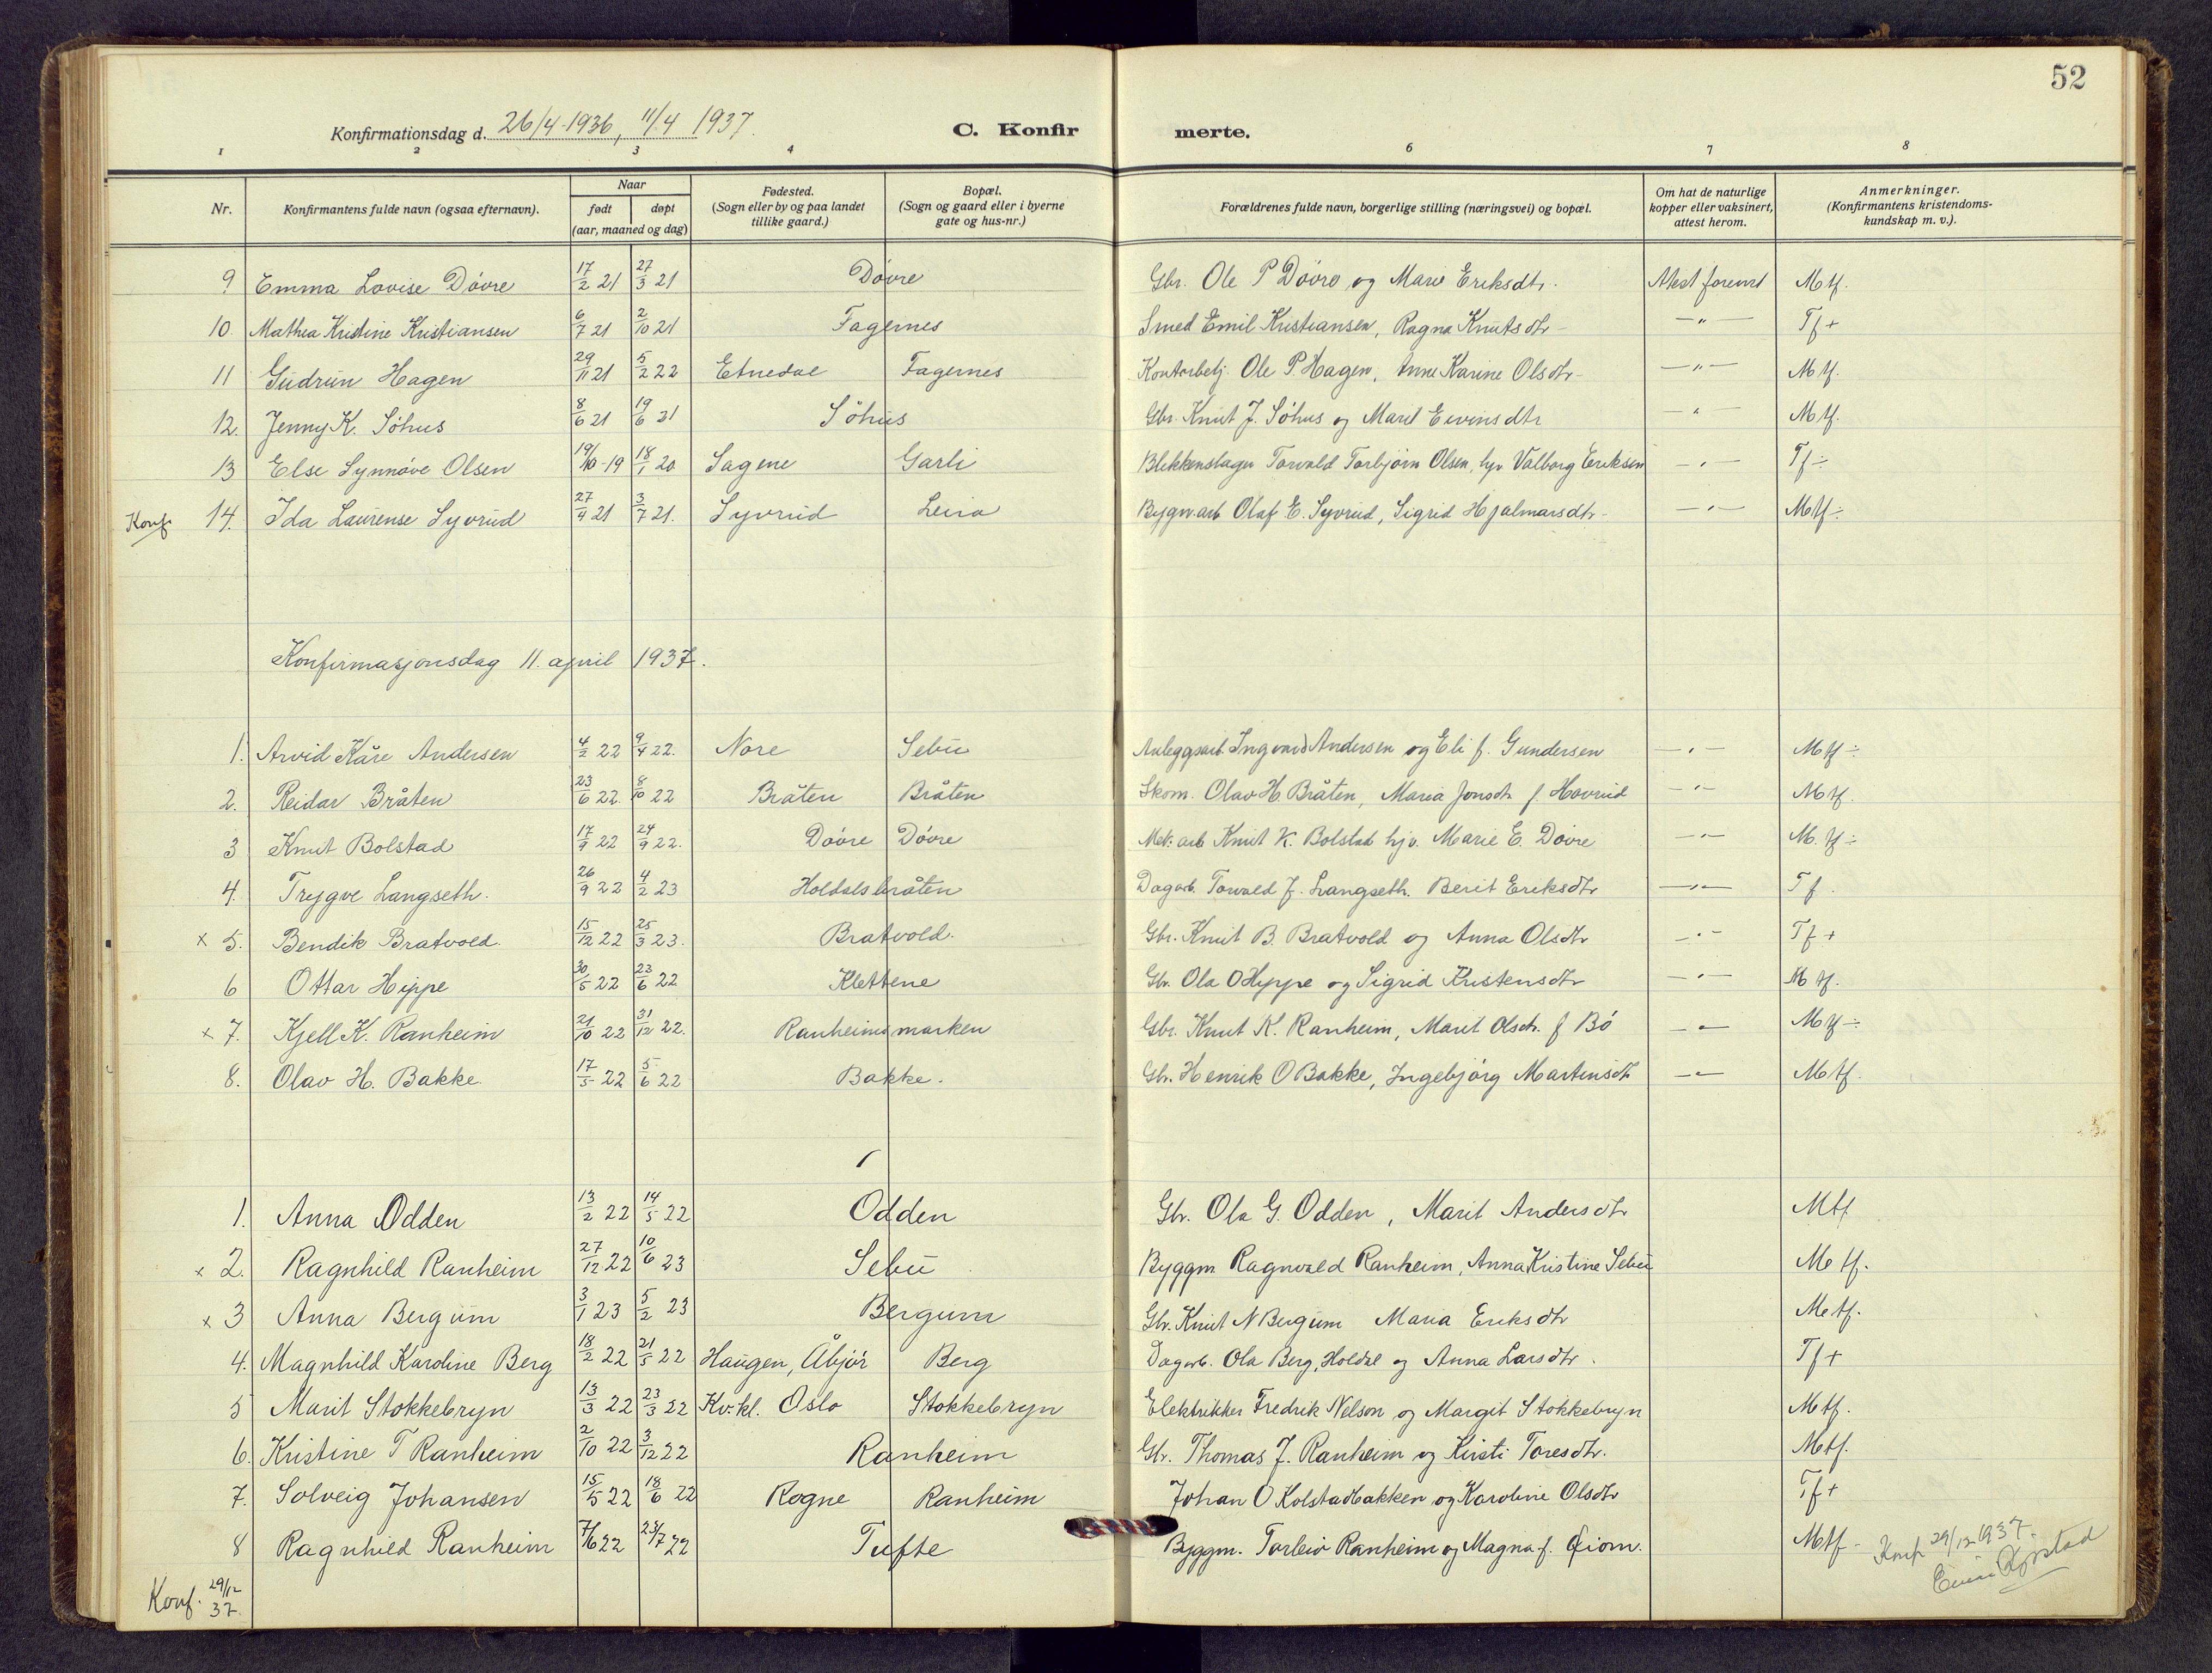 52
Konfirmationsdag d. 26/4-1936, 11/4 1937. C. Konfirmerte.
1 2 3 4 6 7 8
Nr. Konfirmantens fulde navn (ogsaa efternavn). Naar født døpt (aar, maaned og dag) Fødested. (Sogn eller by og paa landet tillike gaard.) Bopæl. (Sogn og gaard eller i byerne gate og hus-nr.) Forældrenes fulde navn, borgerlige stilling (næringsvei) og bopæl. Om hat de naturlige kopper eller vaksinert, attest herom. Anmerkninger. (Konfirmantens kristendomskundskap m. v.).
9 Emma Lovise Døvre 17/2 21 27/3 21 Døvre Gbr. Ole P Døvre og Marie Eriksdtr. Attest forevist Mtf.
10. Mathea Kristine Kristiansen 6/7 21 2/10 21 Fagernes Smed Emil Kristiansen, Ragna Knutsdtr - " - Tf +
11 Gudrun Hagen 29/11 21 5/2 22 Etnedal Fagernes Kontorbetj. Ole P. Hagen, Anne Karine Olsdtr - " - Mtf.
12. Jenny K. Söhus 8/6 21 19/6 21 Söhus Gbr. Knut J. Söhus og Marit Eivinsdtr - " - Mtf.
13 Else Synnöve Olsen 19/10-19 18/1 20 Sagene Garli Blikkenslager Torvald Torbjörn Olsen, hv Valborg Eriksen - " - Tf ÷
Konf 14. Ida Laurense Syvrud 27/4 21 3/7 21. Syvrud Leira Bygn.arb Olaf E. Syvrud, Sigrid Hjalmarsdtr - " - Mtf ÷
Konfirmasjonsdag 11. april 1937.
1. Arvid Kåre Andersen 4/2 22 9/4 22. Nore Sebu Anleggsarb. Ingvard Andersen og Eli f. Gundersen - " - Mtf ÷
2. Reidar Bråten 23/6 22. 8/10 22 Bråten Bråten Skom. Olav H. Bråten, Maria Jonsdtr f. Hovrud - " - Mtf.
3 Knut Bolstad 17/9 22 24/9 22. Dövre Dövre Mek. arb Knut K. Bolstad hv. Marie E. Dövre - " - M. tf ÷
4. Trygve Langseth. 26/9 22 4/2 23 Holdalsbråten Dagarb. Torvald J. Langseth. Berit Eriksdtr - " - Tf.
x 5. Bendik Bratvold. 15/12 22 25/3 23. Bratvold. Gbr. Knut B. Bratvold og Anna Olsdtr - " - Tf +
6 Ottar Hippe 30/5 22 23/6 22 Klettene Gbr. Ola O Hippe og Sigrid Kristensdtr - " - Mtf.
x 7. Kjell K. Ranheim 21/10 22 31/12 22. Ranheimsmarken Gbr. Knut K. Ranheim, Marit Olsdtr. f Bö - " - Mtf ÷
8. Olav H. Bakke. 17/5 22 5/6 22 Bakke. Gbr. Henrik O Bakke, Ingebjörg Martinsdtr - " - Mtf.
1. Anna Odden 13/2 22 14/5 22 Odden Gbr. Ola G. Odden, Marit Andersdtr Mtf
x 2. Ragnhild Ranheim 27/12 22 10/6 23 Sebu Byggm Ragnvald Ranheim, Anna Kristine Sebu Mtf.
x 3 Anna Bergum 3/1 23 5/2 23 Bergum Gbr. Knut N Bergum Maria Eriksdtr Mtf.
4. Magnhild Karoline Berg 18/2 22 21/5 22 Haugen, Åbjör Berg Dagarb. Ola Berg, Holdal og Anna Larsdtr. Tf +
5 Marit Stokkebryn 13/3 22 23/3 22 Kv.kl. Oslo Stokkebryn Elektrikker Fredrik Nelson og Margit Stokkebryn Mtf.
6. Kristine T Ranheim 2/10 22 3/12 22 Ranheim Gbr. Thomas J. Ranheim og Kirsti Toresdtr. Mtf.
7. Solveig Johansen 15/5 22 18/6 22 Rogne Ranheim Johan O Kolstadbakken og Karoline Olsdtr Tf +
8 Ragnhild Ranheim 7/6 22 23/7 22 Tufte Byggm. Torleiv Ranheim og Magna f. Mtf - Konf 29/12 1937.
Konf. 29/12 37.